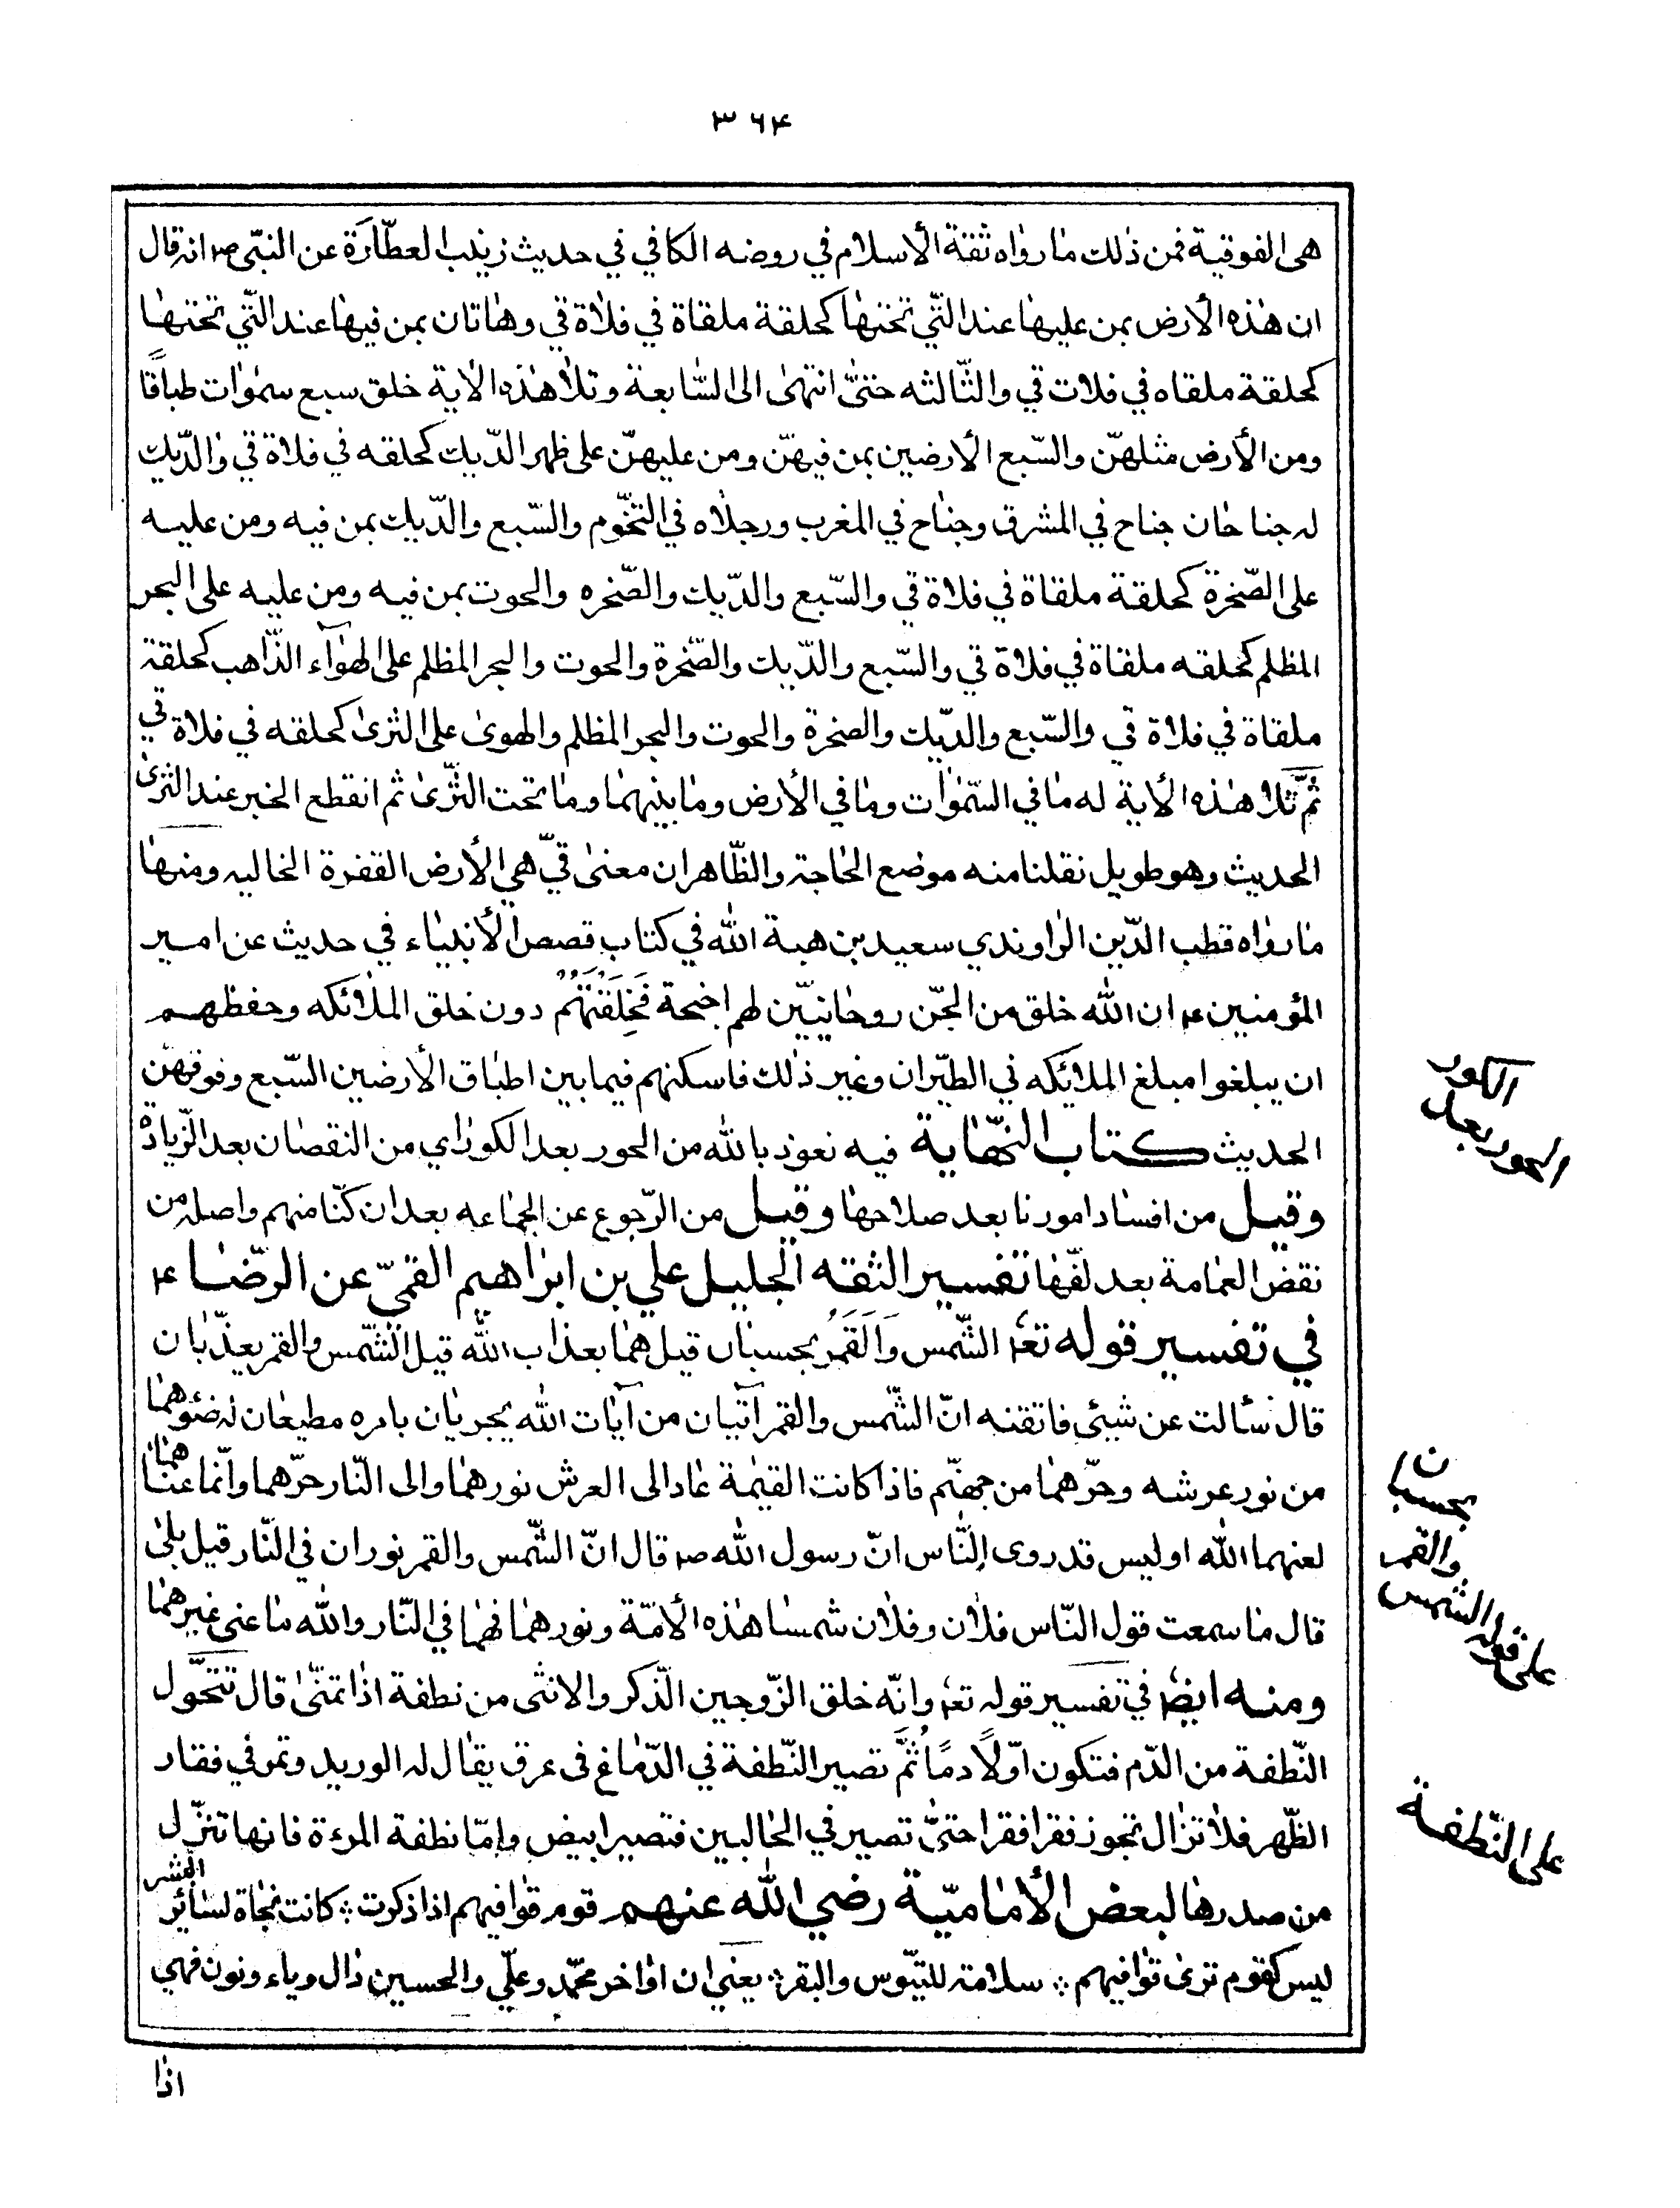 ٣٦۴
هى الفوقية فمن ذٰلك مٰا رواه ثقة الأسلام في روضه الكافي في حديث زينب العطّارَة عن النبّى ص انه قال
ان هٰذه الأرض بمن عليهٰا عند الّتي تحتهٰا كحلقة ملقاة في فلٰاة قي وهٰاتان بمن فيهٰا عند الّتي تحتهٰا
كحلقة ملقاه في فلات قي والثّالثه حتىّٰ انتهىٰ الى السّٰابعة وتلٰا هٰذه الٰاية خلق سبع سمٰوات طباقًا
ومن الأرض مثلهنّ والسّبع الأرضين بمن فيهنّ ومن عليهنّ على ظهر الدّيك كحلقه في فلاة قي والدّيك
له جناحٰان جناح في المشرق وجنٰاح في المغرب ورجلٰاه في التخّوم والسّبع والدّيك بمن فيه ومن عليه
على الصّخرة كحلقة ملقاة في فلاة قي والسّبع والدّيك والصّخره والحوت بمن فيه ومن عليه على البحر
المظلم كحلقه ملقاة في فلاة قي والسّبع والدّيك والصّخرة والحوت والبحر المظلم على الهوٰآء الذّاهب كحلقة
ملقاة في فلاة قي والسّبع والدّيك والصخرة والحوت والبحر المظلم والهوىٰ على الثرىٰ كحلقه في فلاة قي
ثمّ تلٰا هٰذه الأية له مٰا في السّمٰوٰات ومٰا في الأرض ومٰا بينهمٰا ومٰا تحت الثّرىٰ ثم انقطع الخبر عند الثرىٰ
الحديث وهو طويل نقلنا منه موضع الحٰاجة والظّاهر ان معنىٰ قيّ هي الأرض القفرة الخاليه ومنهٰا
مٰا رواه قطب الدّين الراوندي سعيد بن هبة الله في كتاب قصص الأنبيٰاء في حديث عن امير
المؤمنين ع ان الله خلق من الجنّ روحٰانيّين لهم اجنحة فَخِلْقَتُهُمْ دون خلق الملٰائكه وحفظهم
ان يبلغوا مبلغ الملائكه في الطيّران وغير ذٰلك فاسكنهم فيما بين اطبٰاق الأرضين السّبع وفوقهنّ
الحديث كتاب النهّٰاية فيه نعوذ بالله من الحور بعد الكور اي من النقصان بعد الزّيادة
وقيل من افسٰاد امورنا بعد صلاحهٰا وقيل من الرّجوع عن الجمٰاعه بعد ان كنّا منهم واصله من
نقض العمٰامة بعد لفّها تفسير الثقه الجليل علي بن ابرٰاهيم القميّ عن الرّضٰا ع
في تفسير قوله تعٰ الشّمس وَالقَمَرُ بحسبان قيل همٰا بعذاب الله قيل الشّمس والقمر يعذّبان
قال سٔالت عن شيئى فاتقنه انّ الشّمس والقمر آتيان من آيٰات الله يجريٰان بامره مطيعٰان له ضؤهمٰا
من نور عرشه وحرّهمٰا من جهنّم فاذا كانت القيٰمة عٰاد الى العرش نورهمٰا والى النّار حرّهما وانّما عنٰاهمٰا
لعنهما الله اوليس قد روى النّاس انّ رسول الله ص قال انّ الشّمس والقمر نوران في النّار قيل بلىٰ
قال مٰا سمعت قول النّاس فلٰان وفلٰان شمسا هٰذه الأمّة ونورهمٰا فهمٰا في النّار والله مٰا عنى غيرهمٰا
ومنه ايضٰ في تفسير قوله تعٰ وانّه خلق الزّوجين الّذكر والانثى من نطفة اذٰا تمنىّٰ قال تتَحَّول
النّطفة من الدّم فتكون اوّلًا دمًا ثُمَّ تصير النّطفة في الدّمٰاغ فى عرق يقٰال له الوريد وتمر في فقار
الظّهر فلٰا تزٰال تجوز فقرا فقرا حتىّٰ تصير في الحٰالبين فتصير ابيض وامّا نطفة المرءة فانها تنزّل
من صدرهٰا لبعض الأمٰاميّة رضي الله عنهم قوم قوٰافيهم اذا ذكرت ⁘ كانت نجٰاة لسٰاير البشر
ليس كقوم ترىٰ قوٰافيهم ⁘ سلٰامة للتيّوس والبقر ⁘ يعني ان اوٰاخر محمّد وعليّ والحسين ذال وياء ونون فهي
اذٰا
الكور
الحور بعد
بحسبان
والقمر
على قوله الشمس
على النّطفة